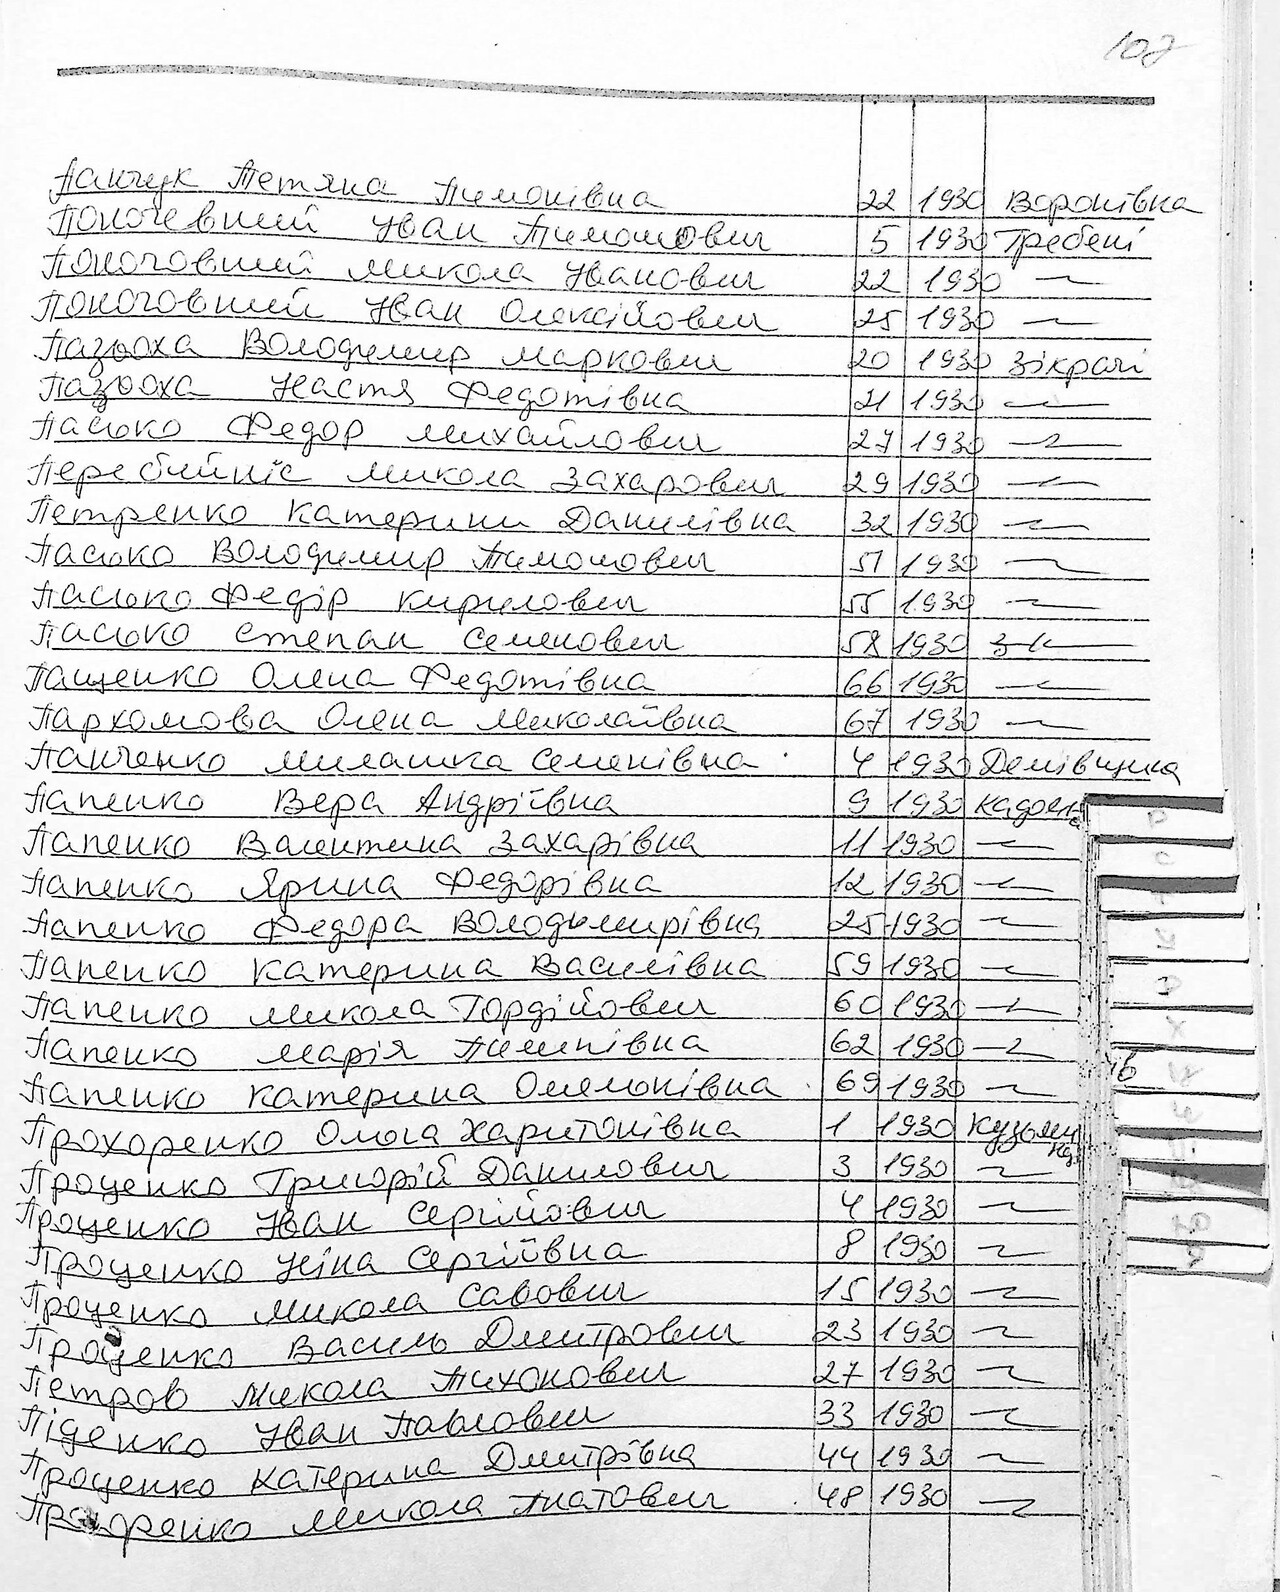 107
Панчук Тетяна Тимонівна 22 1930 Воронівка
Поночевний Іван Тимошович 5 1930 Гребені
Поночовний Микола Іванович 22 1930 —
Поночовний Іван Олексійович 25 1930 —
Пазюха Володимир Маркович 20 1930 Зікрачі
Пазюха Настя Федотівна 21 1930 —
Пасько Федор Михайлович 27 1930 —
Перебийніс Микола Захарович 29 1930 —
Петренко Катерини Данилівна 32 1930 —
Пасько Володимир Тимошович 51 1930 —
Пасько Федір Кирилович 55 1930 —
Пасько Степан Семенович 58 1930 —
Пащенко Олена Федотівна 66 1930 —
Пархомова Олена Миколаївна 67 1930 —
Панченко Милашка Семенівна 4 1930 Демівщина
Папенко Вера Андріївна 9 1930
Папенко Валентина Захарівна 11 1930 —
Папенко Ярина Федорівна 12 1930 —
Папенко Федора Володимирівна 25 1930 —
Папенко Катерина Василівна 59 1930 —
Папенко Микола Гордійович 60 1930 —
Папенко Марія Пилипівна 62 1930 —
Папенко Катерина 69 1930 —
Прохоренко Ольга Харитонівна 1 1930
Проценко Григорій Данилович 3 1930 —
Проценко Іван Сергійович 4 1930 —
Проценко Ніна Сергіївна 8 1930 —
Проценко Микола Савович 15 1930 —
Проценко Василь Дмитрович 23 1930 —
Петров Микола Тихонович 27 1930 —
Піденко Іван Павлович 33 1930 —
Проценко Катерина Дмитрівна 44 1930 —
Микола Гнатович 48 1930 —